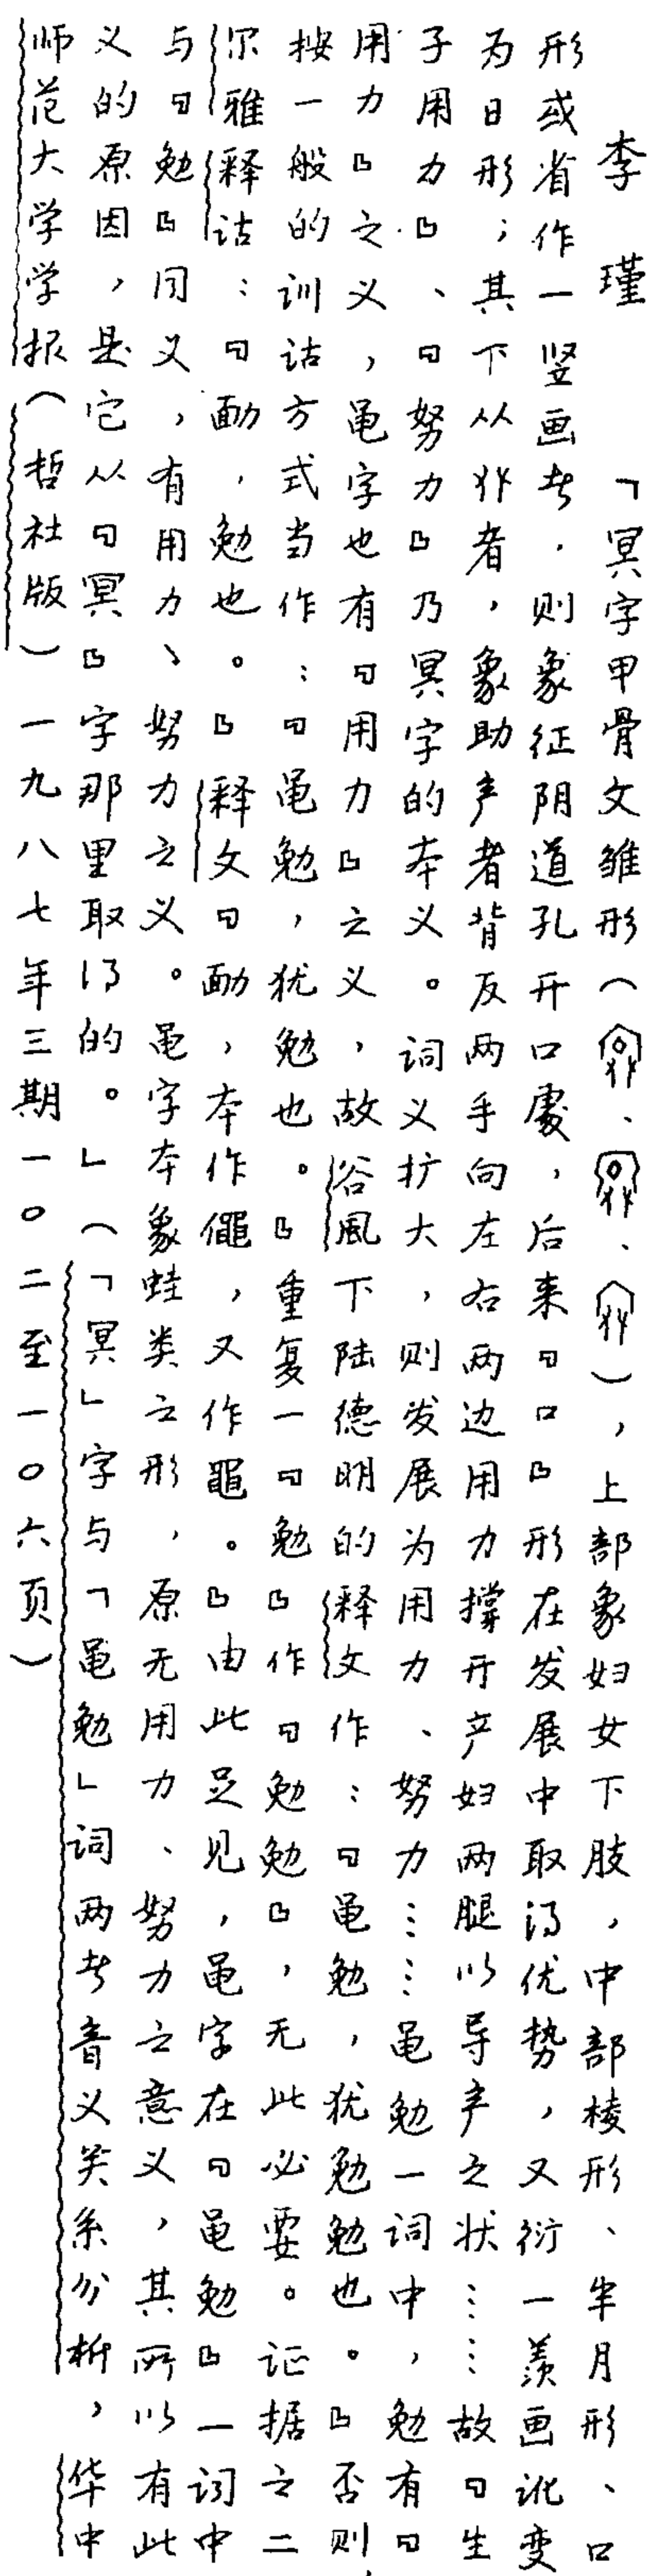 李瑾　「冥字甲骨文雏形（、、），上部象妇女下肢，中部棱形、半月形、口
形或省作一竖画者，则象征阴道孔开口处，后来『口』形在发展中取得优势，又衍一羡画讹变
为日形；其下从者，象助产者背反两手向左右两边用力撑开产妇两腿以导产之状……故『生
子用力』、『努力』乃冥字的本义。词义扩大，则发展为用力、努力……黾勉一词中，勉有『
用力』之义，黾字也有『用力』之义，故谷風下陆德明的释文作：『黾勉，犹勉勉也。』否则
按一般的训诂方式当作：『黾勉，犹勉也。』重复一『勉』作『勉勉』，无此必要。证据之二
尔雅释诂：『勔，勉也。』释文『勔，本作僶，又作黽。』由此足见，黾字在『黾勉』一词中
与『勉』同义，有用力、努力之义。黾字本象蛙类之形，原无用力、努力之意义，其所以有此
义的原因，是它从『冥』字那里取得的。」（「冥」字与「黾勉」词两者音义关系分析，华中
师范大学学报（哲社版）一九八七年三期一〇二至一〇六页）